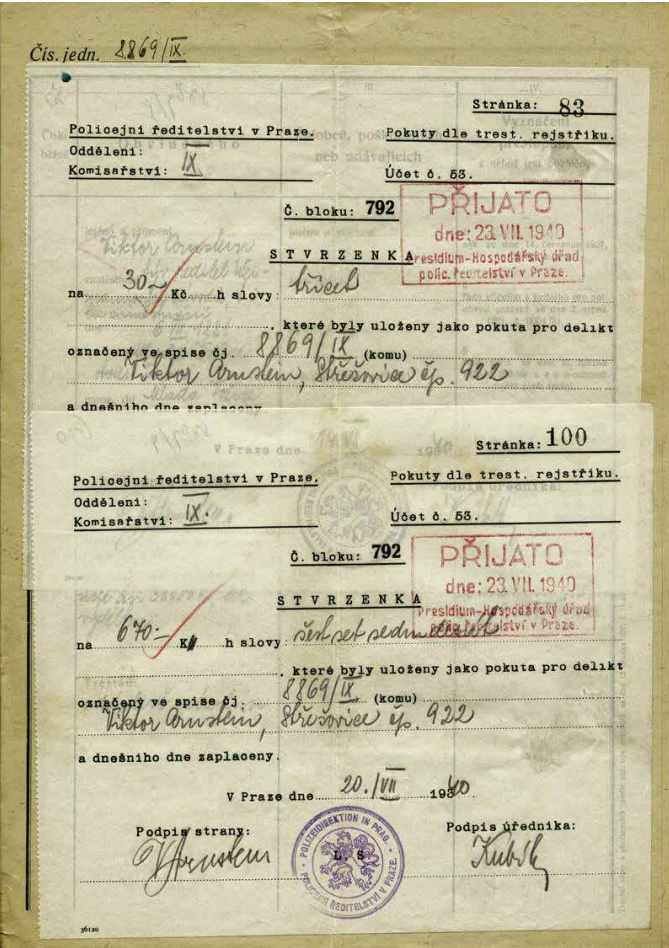 Čís. jedn. 8869/IX.
Stránka: 83
Policejní ředitelství v Praze.
Pokuty dle trest. rejstříku.
Oddělení:
Komisařství: IX
Účet č. 53.
Č. bloku: 792
PŘIJATO
dne: 23. VII. 1940
Presidium-Hospodářský úřad
polic. ředitelství v Praze.
STVRZENKA
na 30.- Kč h slovy: třicet
, které byly uloženy jako pokuta pro delikt
označený ve spise čj. 8869/IX (komu)
Viktor Arnstein, Střešovice čp. 922
a dnešního dne zaplaceny
V Praze dne
Stránka: 100
Policejní ředitelství v Praze.
Pokuty dle trest. rejstříku.
Oddělení:
Komisařství: IX.
Účet č. 53.
Č. bloku: 792
PŘIJATO
dne: 23. VII. 1940
Presidium-Hospodářský úřad
polic. ředitelství v Praze.
STVRZENKA
na 670.- K h slovy: šest set sedmdesát
, které byly uloženy jako pokuta pro delikt
označený ve spise čj. 8869/IX (komu)
Viktor Arnstein, Střešovice čp. 922
a dnešního dne zaplaceny.
V Praze dne 20./VII 1940.
Podpis strany:
Podpis úředníka:
VArnstein
POLIZEIDIREKTION IN PRAG.
L. S.
POLICEJNÍ ŘEDITELSTVÍ V PRAZE.
36120